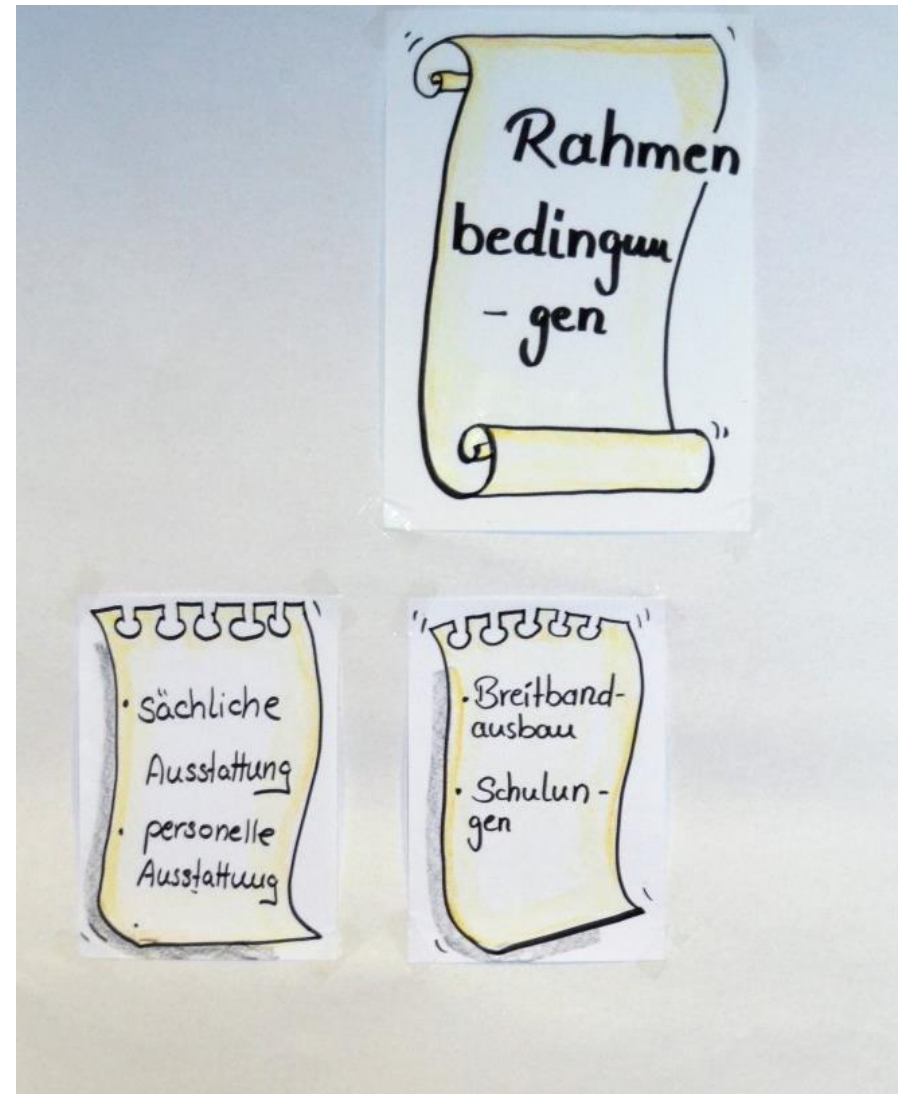 Rahmen
bedingun
- gen
• sächliche
Ausstattung
• personelle
Ausstattung
•
• Breitband-
ausbau
• Schulun-
gen